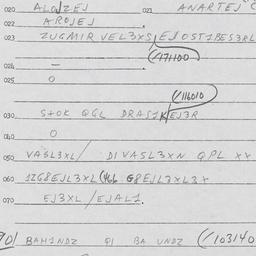 020 ALOZEJ 021 ANARTEJ C
022 AROJEJ
023 ZUGMIR VEL3XS/EJ OST1BES3RL
(471100
024 —
025 O
(116010
030 STOK QGL DRAS1K/EJ3R
040 O
050 VASL3XL/ DIVASL3XN QPL XX
060 1ZG8EJL3XL(4GL G8EJL3XL3X
070 EJ3XL/EJAL1.
901 BAH1NDZ QI BA UNDZ (103140